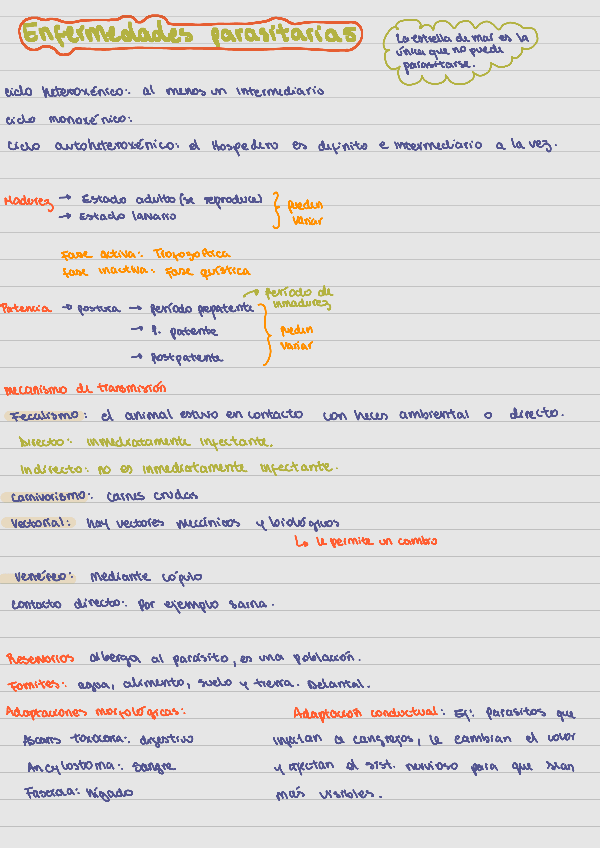 Enfermedades parasitarias
La estrella de mar es la
única que no puede
parasitarse.
ciclo heteroxénico: al menos un intermediario
ciclo monoxénico:
Ciclo autoheteroxénico: el Hospedero es definito e intermediario a la vez.
Madurez → Estado adulto (se reproduce)
→ Estado larvario
pueden
variar
Fase activa: Trofozoítica
Fase inactiva: Fase quística
→ Período de
inmadurez
Patencia → postura → período prepatente
→ P. patente
→ postpatente
pueden
variar
mecanismo de transmisión
Fecalismo: el animal estuvo en contacto con heces ambiental o directo.
Directo: inmediatamente infectante.
Indirecto: no es inmediatamente infectante.
Carnivorismo: carnes crudas
Vectorial: hay vectores mecánicos y biológicos
↳ le permite un cambio
Venéreo: mediante cópula
contacto directo: Por ejemplo sarna.
Reservorios alberga al parásito, es una población.
Fomites: agua, alimento, suelo y tierra. Delantal.
Adaptaciones morfológicas:
Ascaris toxocara: digestivo
Ancylostoma: sangre
Fasciola: hígado
Adaptación conductual: Ej: parásitos que
infectan a cangrejos, le cambian el color
y afectan el sist. nervioso para que sean
más visibles.